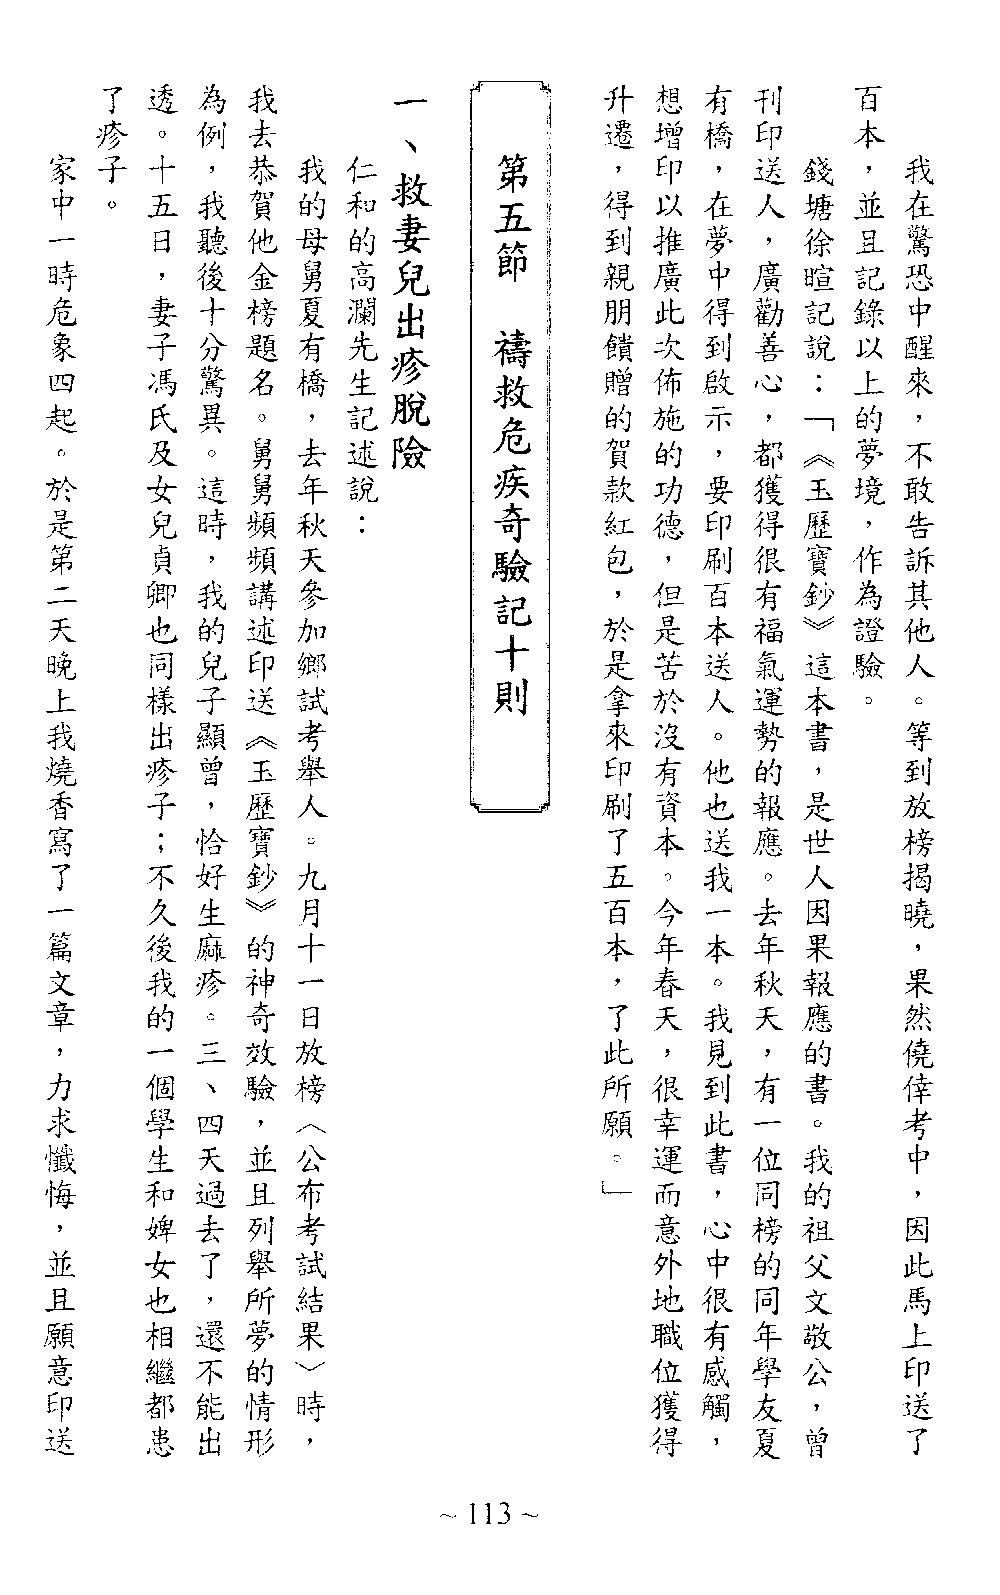 我在驚恐中醒來，不敢告訴其他人。等到放榜揭曉，果然僥倖考中，因此馬上印送了
百本，並且記錄以上的夢境，作為證驗。
錢塘徐暄記說：「《玉歷寶鈔》這本書，是世人因果報應的書。我的祖父文敬公，曾
刊印送人，廣勸善心，都獲得很有福氣運勢的報應。去年秋天，有一位同榜的同年學友夏
有橋，在夢中得到啟示，要印刷百本送人。他也送我一本。我見到此書，心中很有感觸，
想增印以推廣此次佈施的功德，但是苦於沒有資本。今年春天，很幸運而意外地職位獲得
升遷，得到親朋饋贈的賀款紅包，於是拿來印刷了五百本，了此所願。」
第五節　禱救危疾奇驗記十則
一、救妻兒出疹脫險
仁和的高瀾先生記述說：
我的母舅夏有橋，去年秋天參加鄉試考舉人。九月十一日放榜（公布考試結果）時，
我去恭賀他金榜題名。舅舅頻頻講述印送《玉歷寶鈔》的神奇效驗，並且列舉所夢的情形
為例，我聽後十分驚異。這時，我的兒子顯曾，恰好生麻疹。三、四天過去了，還不能出
透。十五日，妻子馮氏及女兒貞卿也同樣出疹子；不久後我的一個學生和婢女也相繼都患
了疹子。
家中一時危象四起。於是第二天晚上我燒香寫了一篇文章，力求懺悔，並且願意印送
~ 113 ~